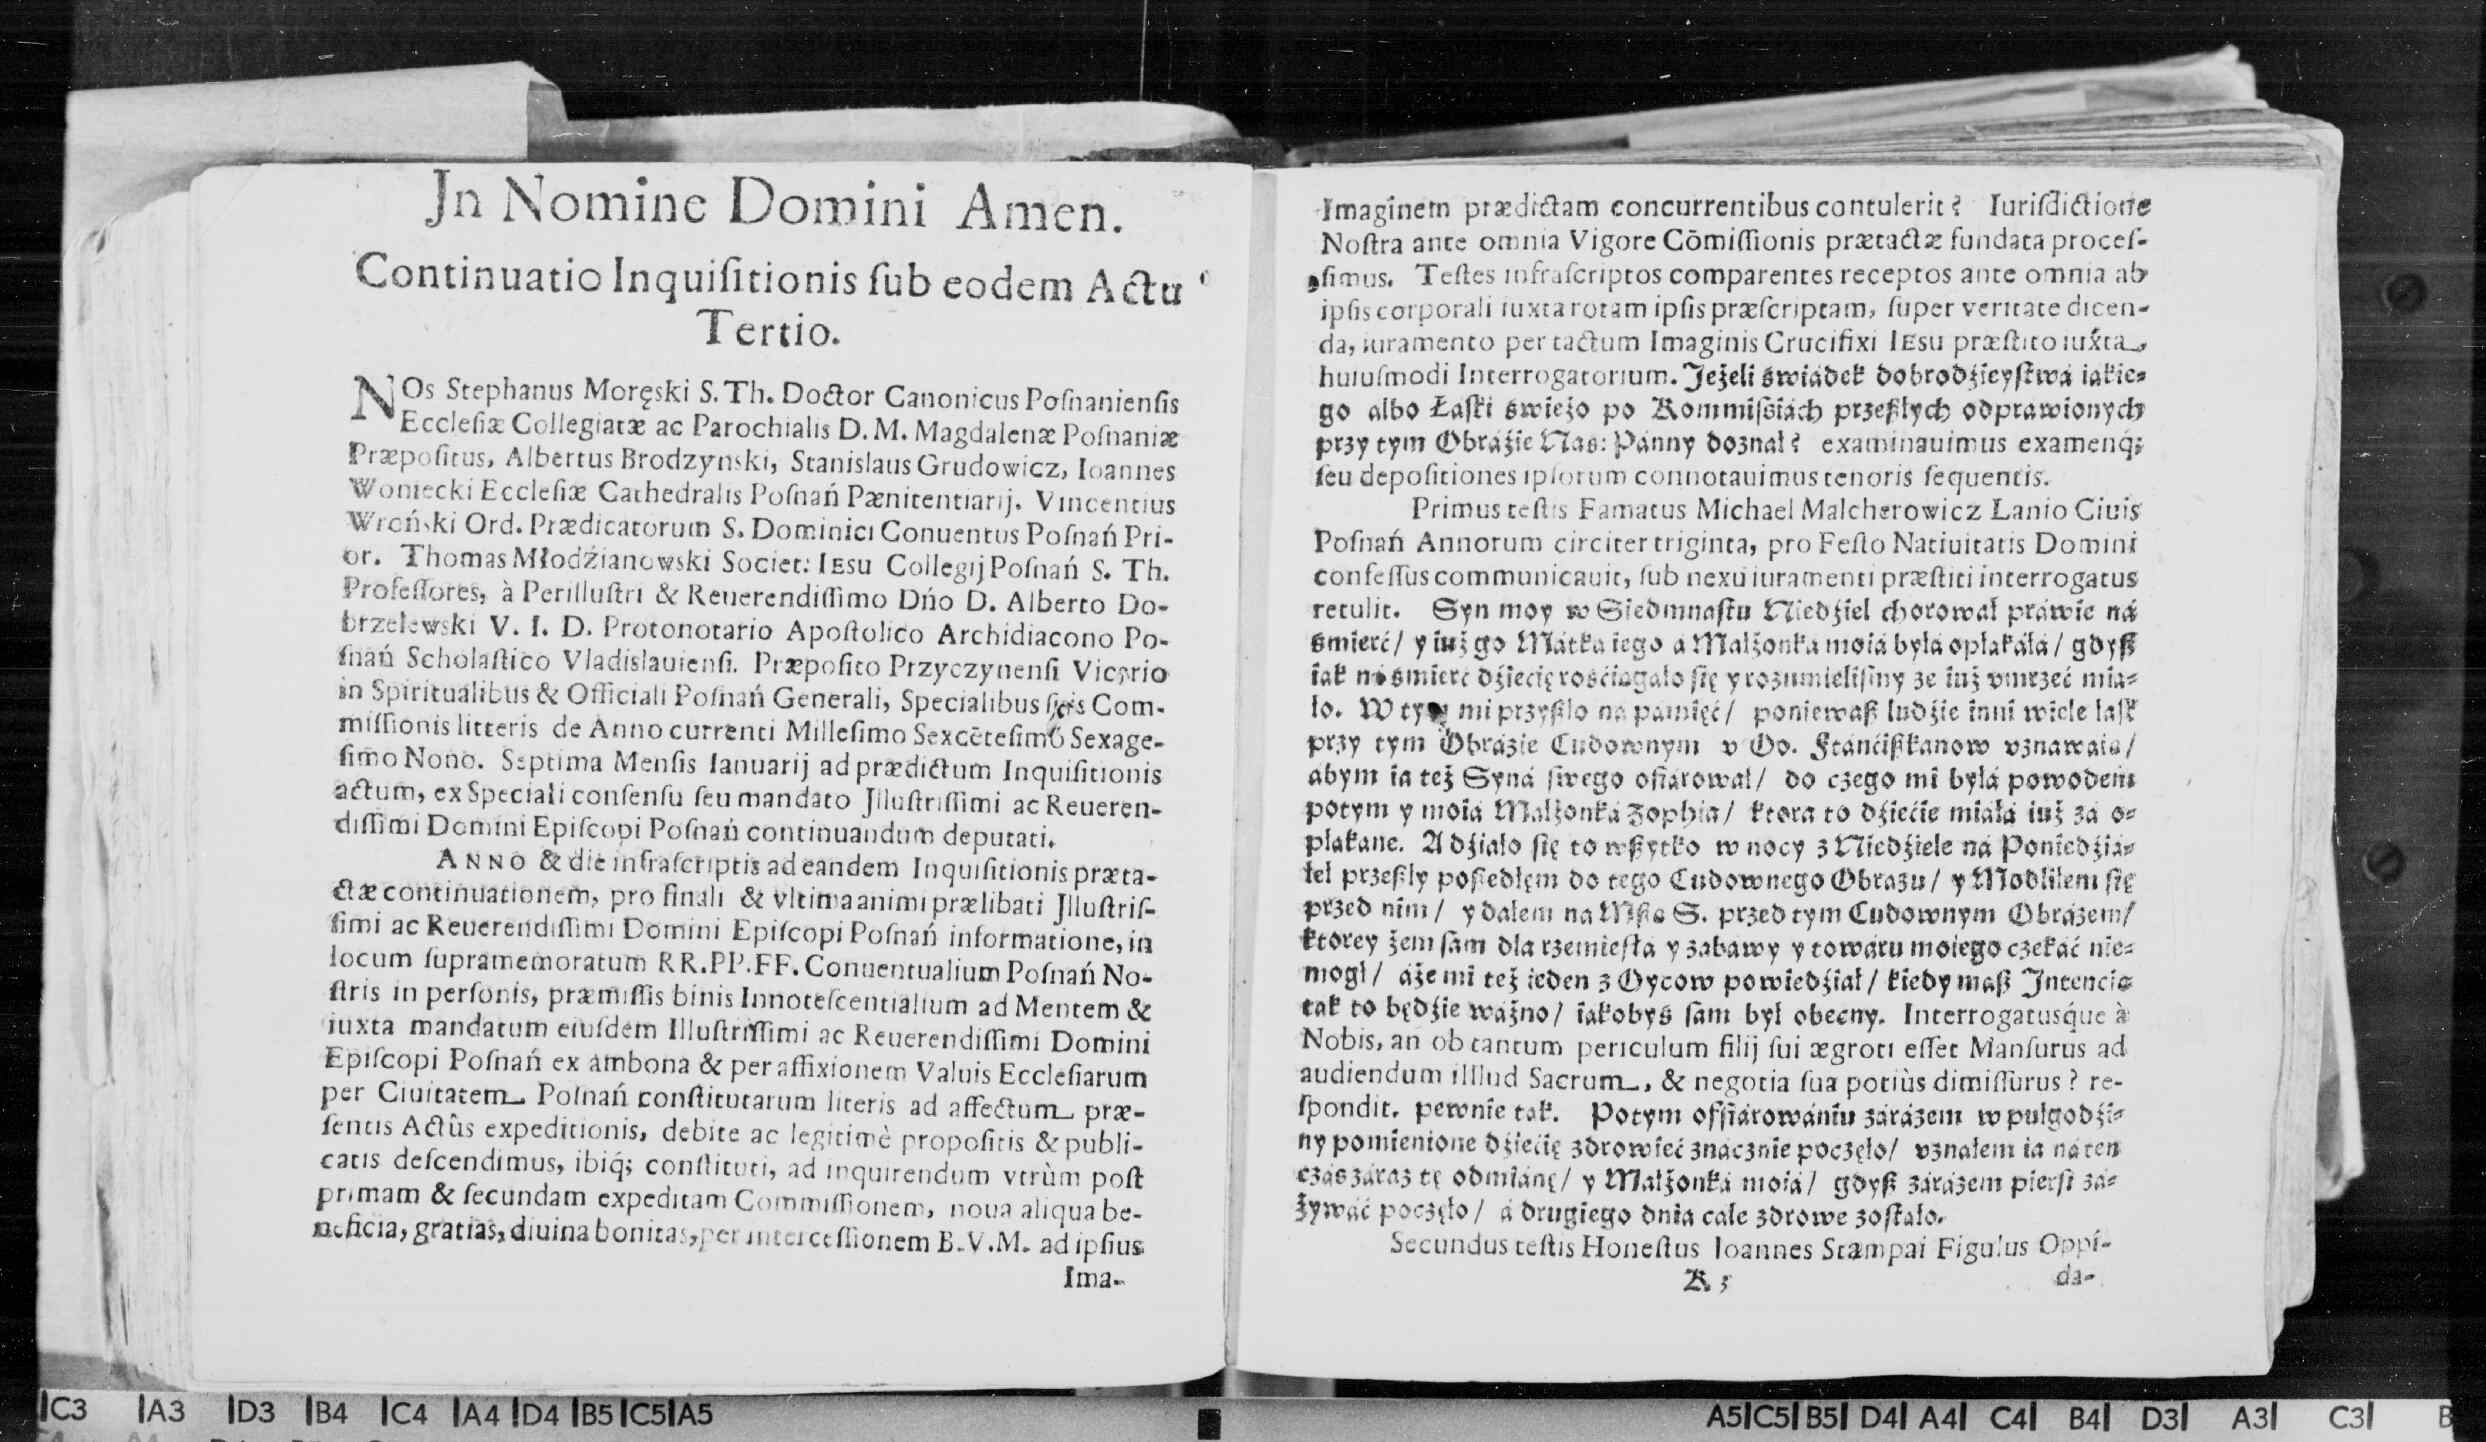 Jn Nomine Domini Amen.
Continuatio Inquiſitionis ſub eodem Actu
Tertio.
NOs Stephanus Moręski S. Th. Doctor Canonicus Poſnanienſis
Eccleſiæ Collegiatæ ac Parochialis D. M. Magdalenæ Poſnaniæ
Præpoſitus, Albertus Brodzynski, Stanislaus Grudowicz, Ioannes
Woniecki Eccleſiæ Cathedralis Poſnań Pænitentiarij. Vincentius
Wroński Ord. Prædicatorum S. Dominici Conuentus Poſnań Pri-
or. Thomas Młodźianowski Societ: IEsu Collegij Poſnań S. Th.
Profeſſores, à Perilluſtri & Reuerendiſſimo Dńo D. Alberto Do-
brzelewski V. I. D. Protonotario Apoſtolico Archidiacono Po-
ſnań Scholaſtico Vladislauienſi. Præpoſito Przyczynenſi Vicario
in Spiritualibus & Officiali Poſnań Generali, Specialibus Com-
miſſionis litteris de Anno currenti Milleſimo Sexcēteſimo Sexage-
ſimo Nono. Septima Menſis Ianuarij ad prædictum Inquiſitionis
actum, ex Speciali conſenſu ſeu mandato Jlluſtriſſimi ac Reueren-
diſſimi Domini Epiſcopi Poſnań continuandum deputati.
ANNO & die infraſcriptis ad eandem Inquiſitionis præta-
ctæ continuationem, pro finali & vltima animi prælibati Jlluſtriſ-
ſimi ac Reuerendiſſimi Domini Epiſcopi Poſnań informatione, in
locum ſupramemoratum RR.PP.FF. Conuentualium Poſnań No-
ſtris in perſonis, præmiſſis binis Innoteſcentialium ad Mentem &
iuxta mandatum eiuſdem Illuſtriſſimi ac Reuerendiſſimi Domini
Epiſcopi Poſnań ex ambona & per affixionem Valuis Eccleſiarum
per Ciuitatem Poſnań conſtitutarum literis ad affectum præ-
ſentis Actûs expeditionis, debite ac legitimè propoſitis & publi-
catis deſcendimus, ibiq́; conſtituti, ad inquirendum vtrùm poſt
primam & ſecundam expeditam Commiſſionem, noua aliqua be-
neficia, gratias, diuina bonitas, per interceſſionem B.V.M. ad ipſius
Ima-
Imaginem prædictam concurrentibus contulerit? Iuriſdictione
Noſtra ante omnia Vigore Cōmiſſionis prætactæ fundata proceſ-
ſimus. Teſtes infraſcriptos comparentes receptos ante omnia ab
ipſis corporali iuxta rotam ipſis præſcriptam, ſuper veritate dicen-
da, iuramento per tactum Imaginis Crucifixi IEsu præſtito iuxta
huiuſmodi Interrogatorium. Jeżeli świádek dobrodźieyſtwá iákie-
go albo Łaſki świeżo po Kommiſsiách przeßłych odprawionych
przy tym Obráźie Nas: Pánny doznał? examinauimus examenq́;
ſeu depoſitiones ipſorum connotauimus tenoris ſequentis.
Primus teſtis Famatus Michael Malcherowicz Lanio Ciuis
Poſnań Annorum circiter triginta, pro Feſto Natiuitatis Domini
confeſſus communicauit, ſub nexu iuramenti præſtiti interrogatus
retulit. Syn moy w Siedmnaſtu Niedźiel chorował práwie ná
śmierć/ y iuż go Mátka iego á Małżonká moiá byłá opłakáłá/ gdyß
iak ná śmierć dźiecię rośćiągáło ſię y rozumieliſmy że iuż vmrzeć mia-
ło. W tym mi przyßło ná pámięć/ poniewaß ludźie inni wiele łaſk
przy tym Obrázie Cudownym v Oo. Fránćißkanow vznawáią/
abym ia też Syná ſwego ofiárował/ do czego mi byłá powodem
potym y moiá Małżonká Zophia/ ktora to dźiećie miáłá iuż zá o-
płakane. A dźiáło ſię to wßytko w nocy z Niedźiele ná Poniedźia-
łek przeßły poßedłęm do tego Cudownego Obrazu/ y Modliłem ſię
przed nim/ y dałem ná Mßą S. przed tym Cudownym Obrázem/
ktorey żem ſam dla rzemieſłá y zabawy y towáru moiego czekáć nie-
mogł/ áże mi też ieden z Oycow powiedźiał/ kiedy maß Intencią
tak to będźie ważno/ iákobyś ſam był obecny. Interrogatusq́ue à
Nobis, an ob tantum periculum filij ſui ægroti eſſet Manſurus ad
audiendum illlud Sacrum, & negotia ſua potiùs dimiſſurus? re-
ſpondit. pewnie tak. Potym offiárowániu zárázem w pułgodźi-
ny pomienione dźiećię zdrowieć znácznie poczęło/ vznałem ia ná ten
czás záraz tę odmiánę/ y Małżonká moiá/ gdyß zárázem pierśi zá-
żywáć poczęło/ á drugiego dniá cále zdrowe zoſtáło.
Secundus teſtis Honeſtus Ioannes Stampai Figulus Oppi-
K 3
da-
C3 A3 D3 B4 C4 A4 D4 B5 C5 A5
A5 C5 B5 D4 A4 C4 B4 D3 A3 C3 B